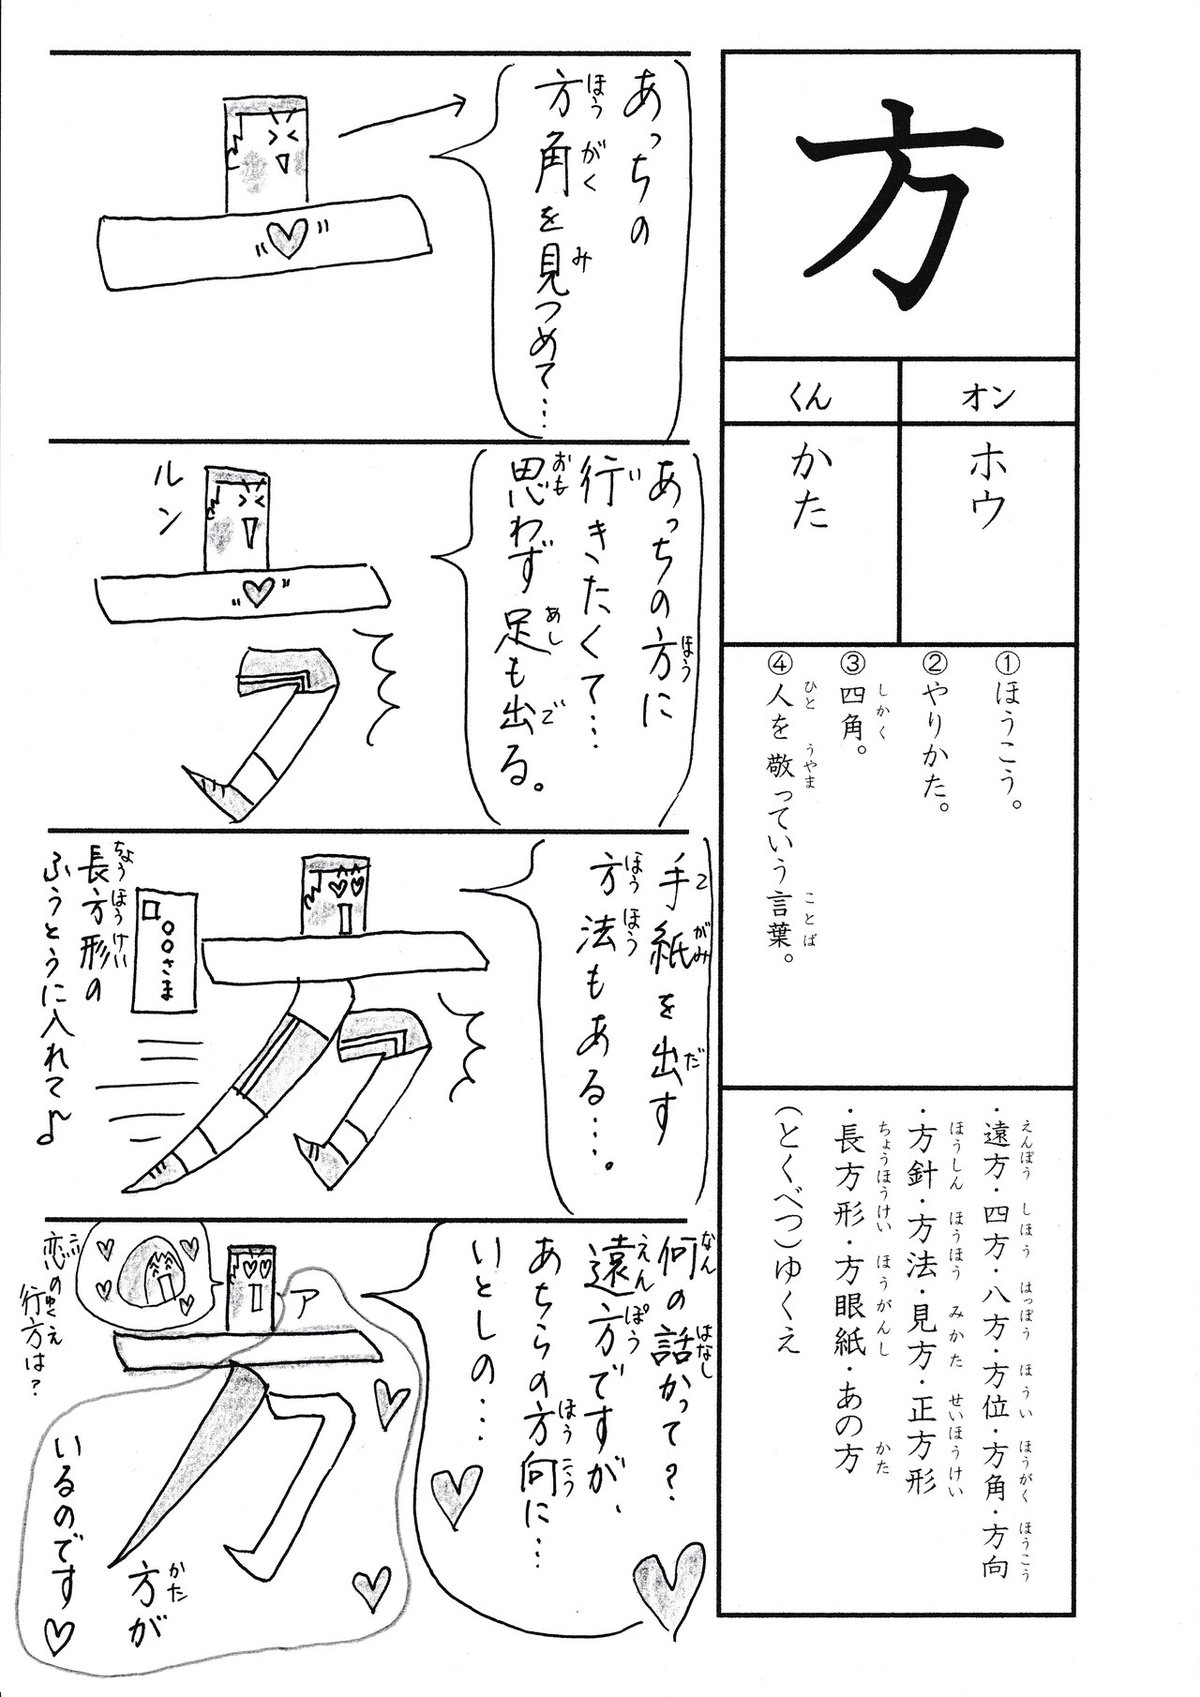 方
オン
ホウ
くん
かた
①ほうこう。
②やりかた。
③四角。
しかく
④人を敬っていう言葉。
ひと うやま ことば
・遠方・四方・八方・方位・方角・方向
えんぽう しほう はっぽう ほうい ほうがく ほうこう
・方針・方法・見方・正方形
ほうしん ほうほう みかた せいほうけい
・長方形・方眼紙・あの方
ちょうほうけい ほうがんし かた
(とくべつ)ゆくえ
あっちの
方角を見つめて…
ほうがく み
あっちの方に
ほう
行きたくて…
い
思わず足も出る。
おも あし で
ルン
手紙を出す
てがみ だ
方法もある…。
ほうほう
〇〇さま
長方形の
ちょうほうけい
ふうとうに入れて♪
何の話かって?
なん はなし
遠方ですが、
えんぽう
あちらの方向に…
ほうこう
いとしの…
ア
方が
かた
いるのです♡
恋の
こい
行方は?
ゆくえ